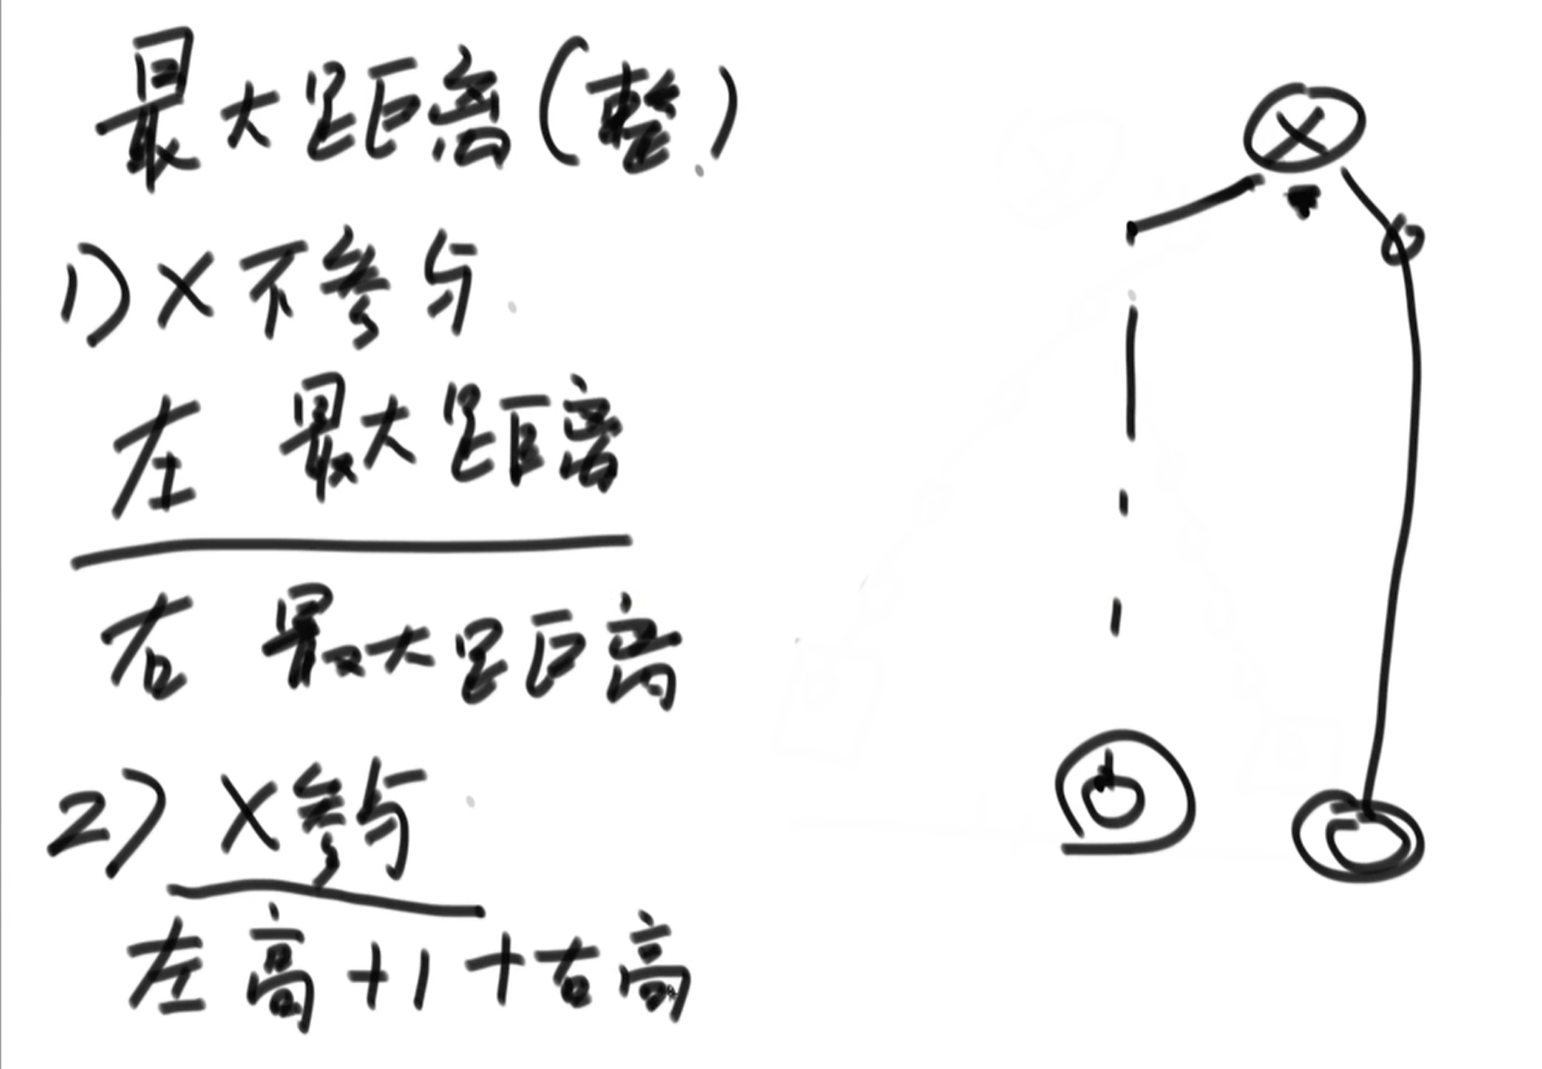 最大距离(整)
1) X 不参与
左 最大距离
右 最大距离
2) X 参与
左高+1+右高
X